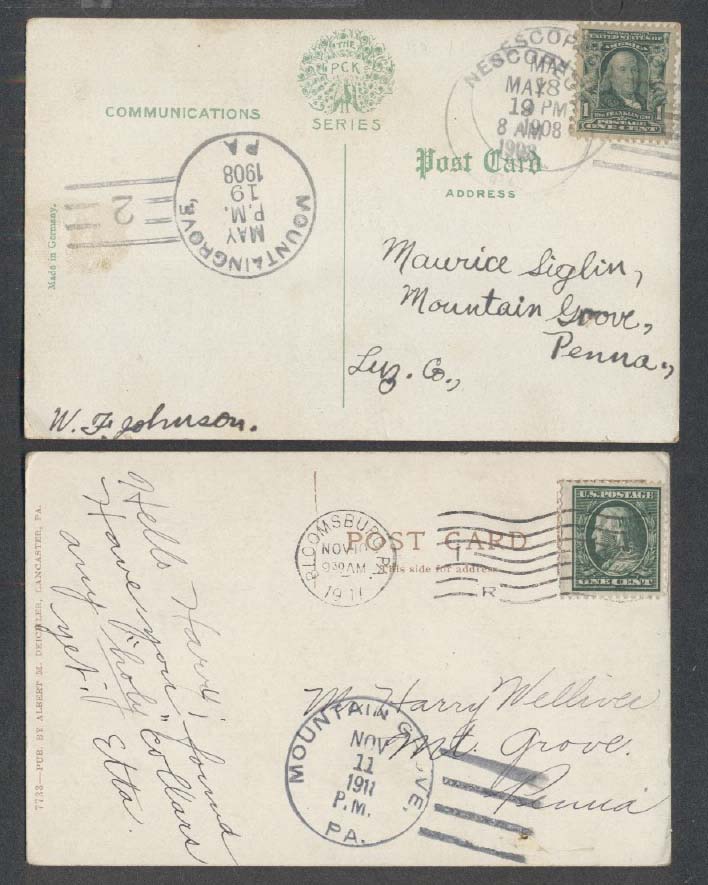 THE
PCK
SERIES
COMMUNICATIONS
Post Card
ADDRESS
NESCOP
NESCOP
MAY
MAY 18
19 PM
8 AM 1908
1908
UNITED STATES OF
AMERICA
1 1
POSTAGE
ONE CENT
MOUNTAINGROVE,
PA
MAY
19
P.M.
1908
2
Made in Germany.
Maurice Siglin,
Mountain Groove,
Penna.,
Luz. Co.,
W. F. Johnson.
7733—PUB. BY ALBERT M. DEICHLER, LANCASTER, PA.
Hello Harry; found
Have you
any "holy" collars
yet?
Etta.
BLOOMSBURG
PA.
NOV 10
930 AM
1911
R
POST CARD
This side for address
U.S. POSTAGE
ONE CENT
Mr Harry Welliver
Mt. Grove.
Penna
MOUNTAIN GROVE,
NOV
11
1911
P.M.
PA.